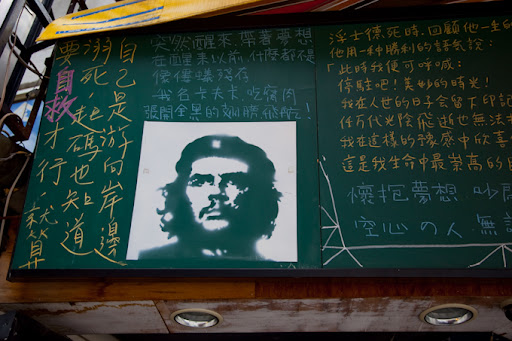 要自救才行,就算
溺死,起碼也知道
自己是游向岸邊
突然醒來,帶著夢想
以前,什麼都不是
我名卡夫卡吃腐肉
張開全黑的翅膀飛
浮士德死時,回顧他一生的
他用一種勝利的語氣說:
「此時我便可呼喊:
停駐吧!美妙的時光!
我在人世的日子會留下印記
任万代光陰飛逝也無法
我在這樣的預感中欣喜
這是我生命中最崇高的
懷抱夢想
空心の人 無